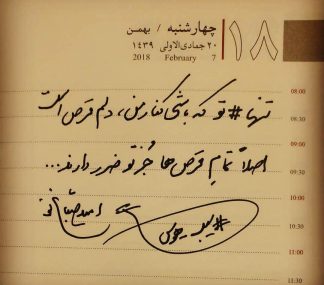 ۱۸
چهارشنبه / بهمن
۲۰ جمادی‌الاولی ۱۴۳۹
2018 February 7
08:00
تنها #تو که باشی کنار من، دلم قرص است
08:30
09:00
اصلاً تمام قرص‌ها جز تو ضرر دارند...
09:30
10:00
امید صباغ نو
#سیب_حوس
10:30
11:00
11:30